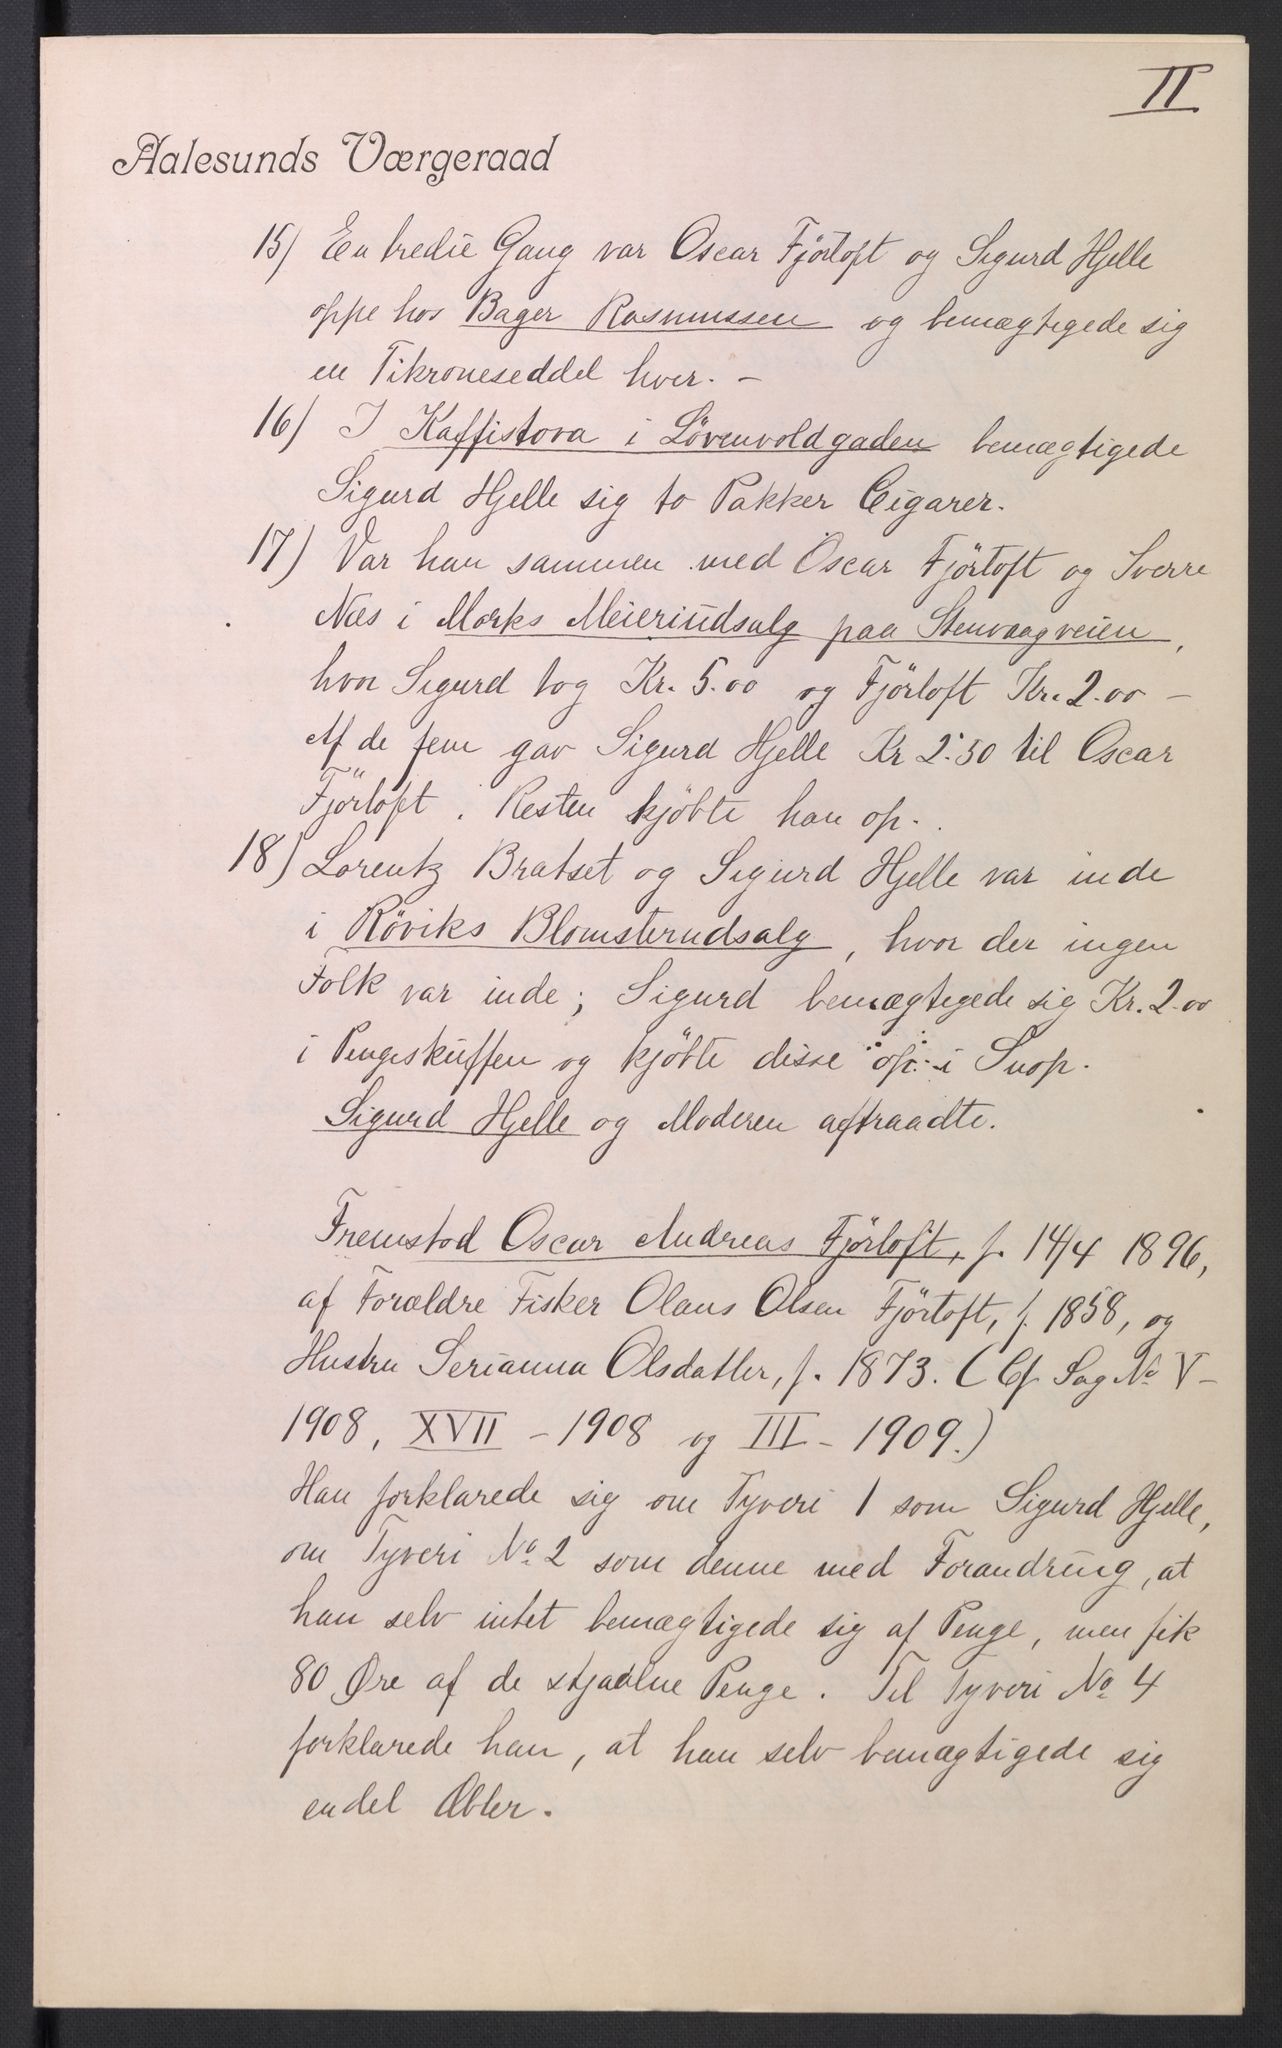 II
Aalesunds Værgeraad
15) En tredie Gang var Oscar Fjörtoft og Sigurd Hjelle
oppe hos Bager Rasmussen og bemægtigede sig
en Tikroneseddel hver. –
16) I Kaffistova i Lövenvoldgaden bemægtigede
Sigurd Hjelle sig to Pakker Cigarer.
17) Var han sammen med Oscar Fjörtoft og Sverre
Næs i Morks Meieriudsalg paa Stenvaagveien,
hvor Sigurd tog Kr. 5.00 og Fjörtoft Kr. 2.00 –
Af de fem gav Sigurd Hjelle Kr 2.50 til Oscar
Fjörtoft. Resten kjöbte han op.
18) Lorentz Bratset og Sigurd Hjelle var inde
i Röviks Blomsterudsalg, hvor der ingen
Folk var inde; Sigurd bemægtigede sig Kr. 2.00
i Pengeskuffen og kjöbte disse op i Snop.
Sigurd Hjelle og Moderen aftraadte.
Fremstod Oscar Andreas Fjörtoft, f. 14/4 1896,
af Forældre Fisker Olaus Olsen Fjörtoft, f. 1858, og
Hustru Serianna Olsdatter, f. 1873. (Cf Sag No V–
1908, XVII – 1908 og III – 1909.)
Han forklarede sig om Tyveri 1 som Sigurd Hjelle,
om Tyveri No 2 som denne med Forandring, at
han selv intet bemægtigede sig af Penge, men fik
80 Øre af de stjaalne Penge. Til Tyveri No 4
forklarede han, at han selv bemægtigede sig
endel Æbler.